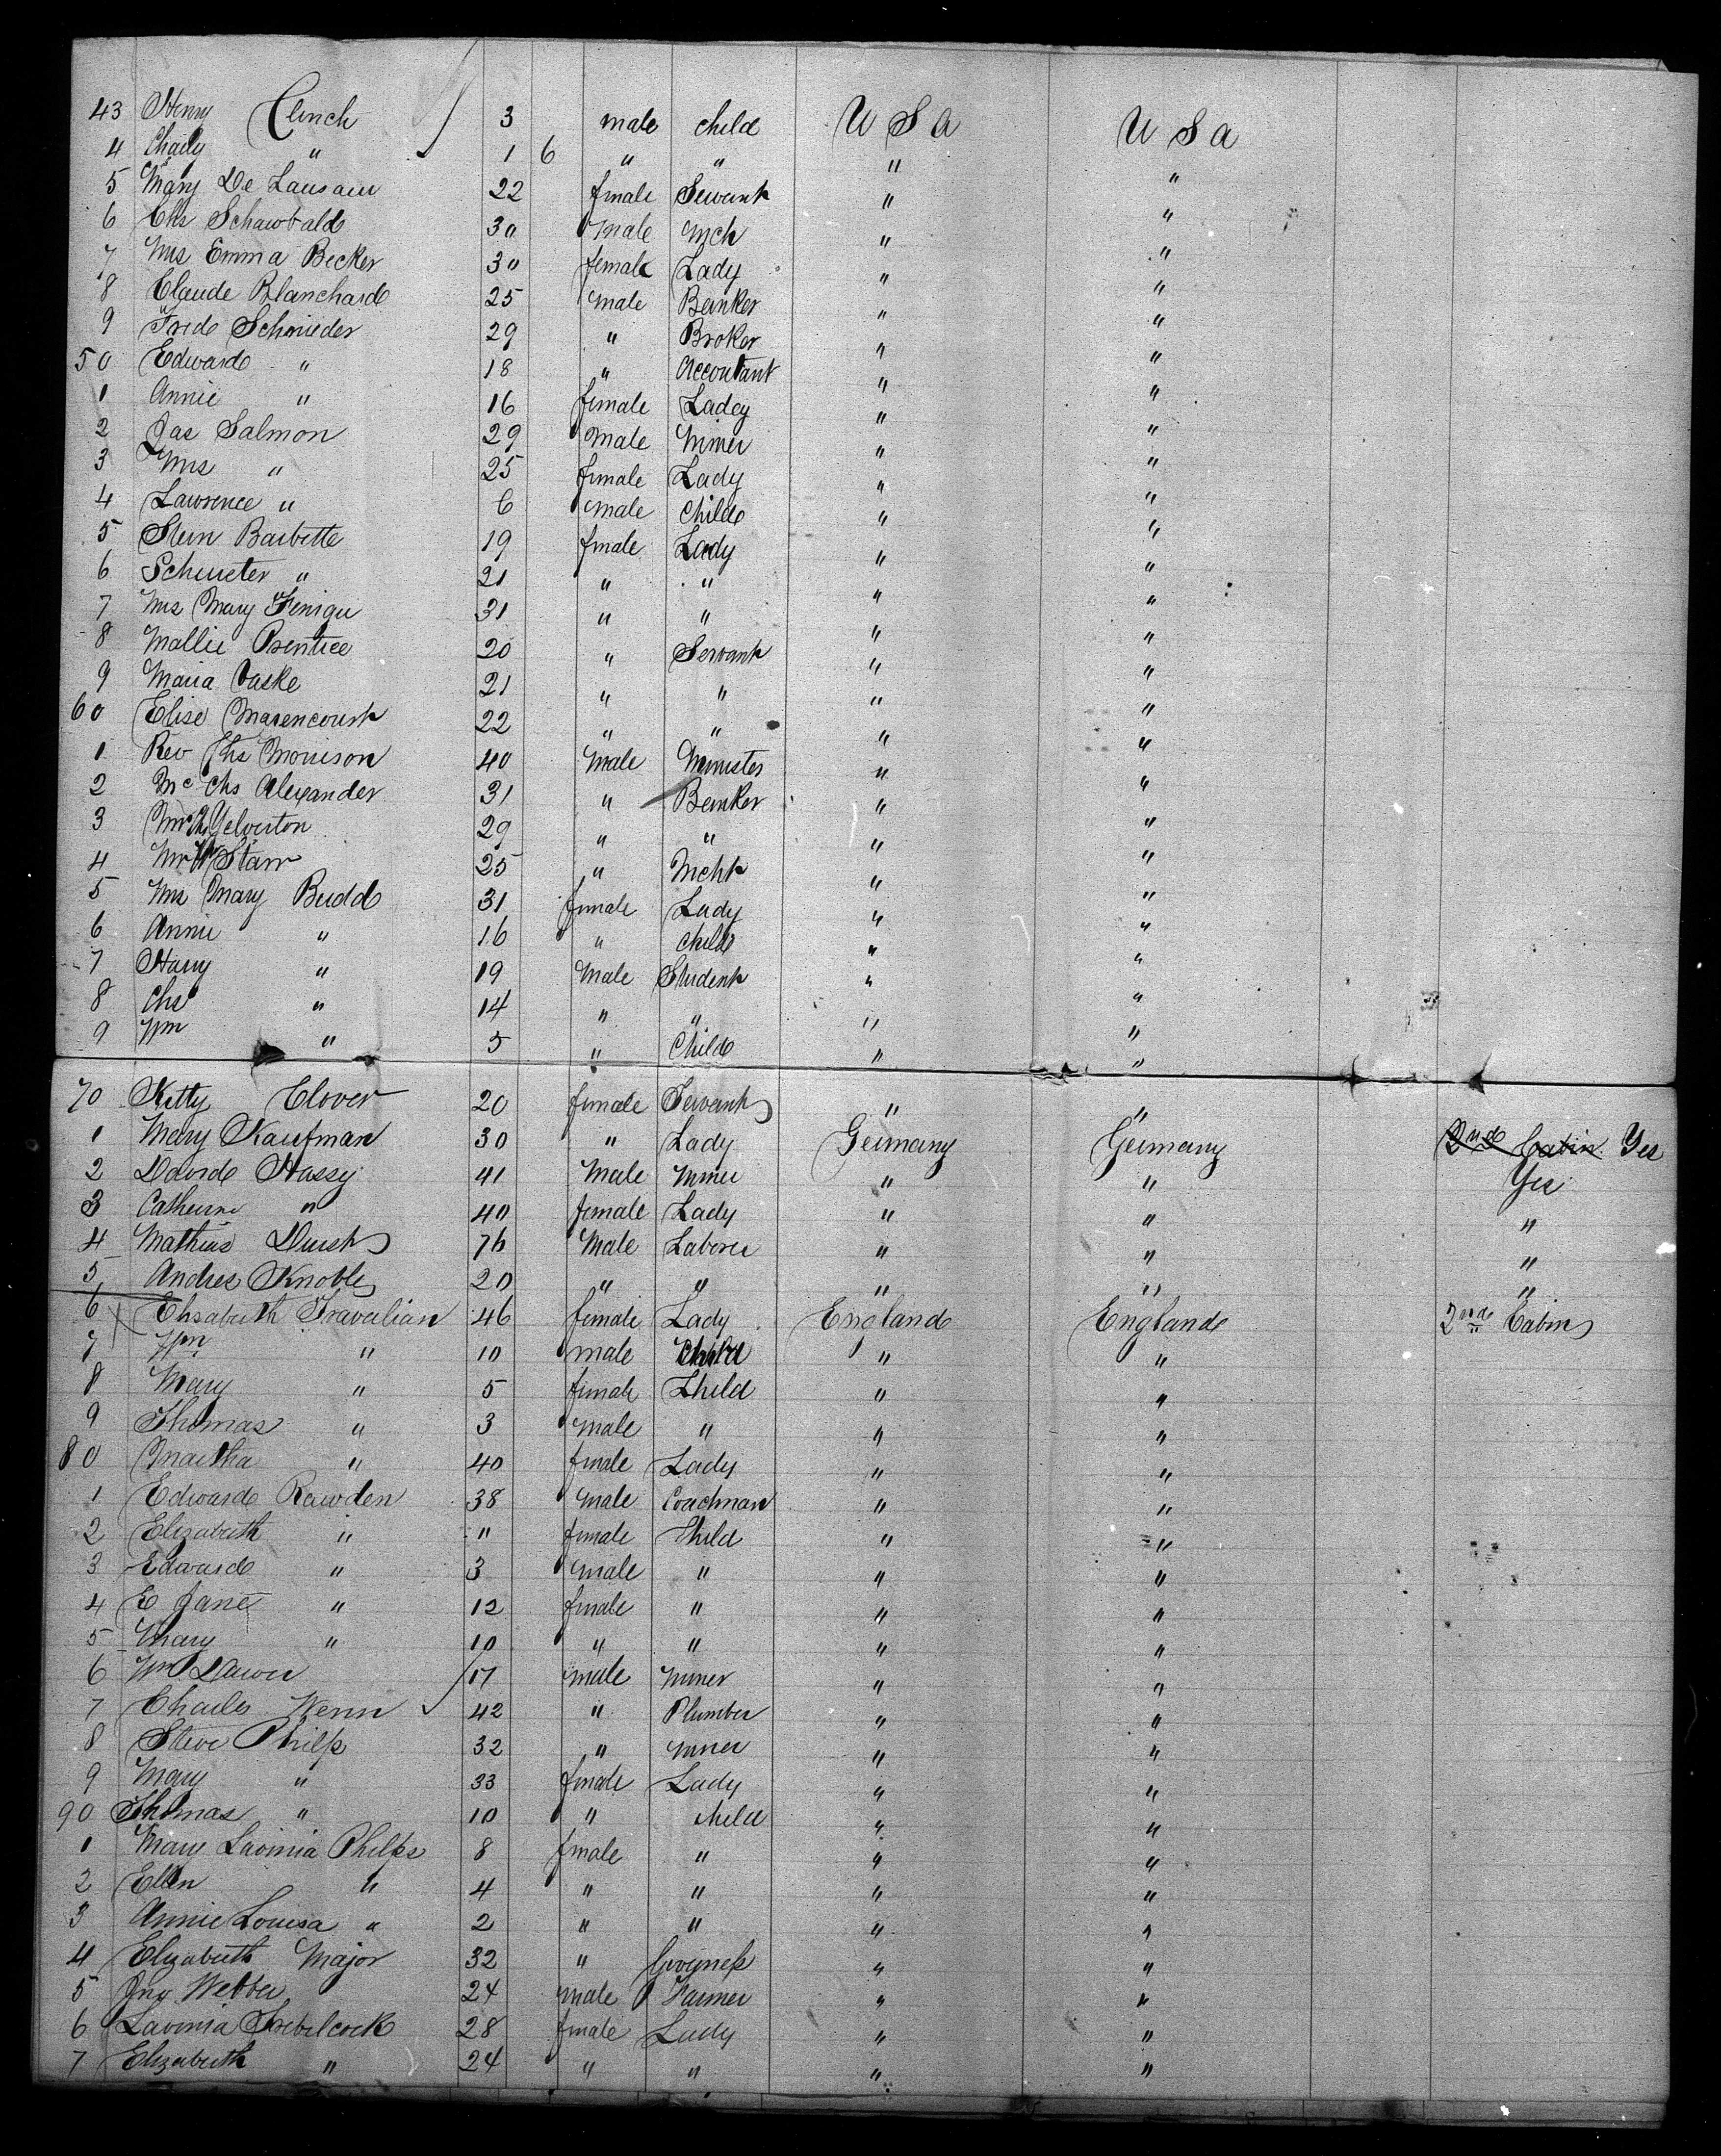 43 Henry Clinch 3 male child U S A U S A
4 Charly " 1 6 " " " "
5 Mary De Lausaur 22 female Servant " "
6 Chs Schawbald 30 Male Mch " "
7 Mrs Emma Becker 30 female Lady " "
8 Claude Blanchard 25 male Banker " "
9 Fred Schnieder 29 " Broker " "
50 Edward " 18 " Accountant " "
1 Annie " 16 female Ladey " "
2 Jas Salmon 29 male Miner " "
3 Mrs " 25 female Lady " "
4 Lawrence " 6 male Child " "
5 Stern Barbette 19 female Lady " "
6 " 21 " " " "
7 Mrs Mary 31 " " " "
8 Mallie Prentice 20 " Servant " "
9 Maria Vaske 21 " " " "
60 Elise Marencourt 22 " " " "
1 Rev Ths Morrison 40 Male Minister " "
2 Mr Chs Alexander 31 " Banker " "
3 Mr Yelverton 29 " " " "
4 Mr W Starr 25 " Mcht " "
5 Mrs Mary Budd 31 female Lady " "
6 Annie " 16 " child " "
7 Harry " 19 Male Student " "
8 Chs " 14 " " " "
9 Wm " 5 " Child " "
70 Kitty Clover 20 female Servant " "
1 Mary Kaufman 30 " Lady Germany Germany 2nd Cabin Yes
2 David Hassy 41 Male Miner " " Yes
3 Catherine " 40 female Lady " " "
4 Mathias 76 Male Laborer " " "
5 Andres Knoble 20 " " " " "
6 Elisabeth Travalian 46 female Lady England England 2nd Cabin
7 Wm " 10 male Child " "
8 Mary " 5 female Child " "
9 Thomas " 3 male " " "
80 Martha " 40 female Lady " "
1 Edward Rawden 38 male Coachman " "
2 Elizabeth " " female Child " "
3 Edward " 3 male " " "
4 E Jane " 12 female " " "
5 Mary " 10 " " " "
6 Wm Dawe 17 male Miner " "
7 Charles Wenn 42 " Plumber " "
8 Steve Philps 32 " Miner " "
9 Mary " 33 female Lady " "
90 Thomas " 10 " child " "
1 Mary Lavinia Philps 8 female " " "
2 Ellen " 4 " " " "
3 Annie Louisa " 2 " " " "
4 Elizabeth Major 32 " " "
5 Jno Webber 24 male Farmer " "
6 Lavinia Trebilcock 28 female Lady " "
7 Elizabeth " 24 " " " "